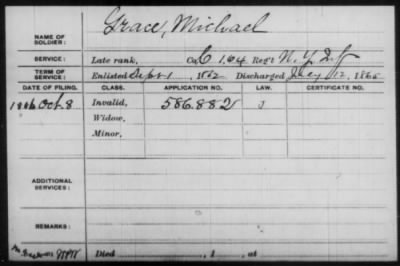 Grace, Michael
NAME OF SOLDIER:
SERVICE: Late rank, Co. C 164 Reg't N.Y. Inf
TERM OF SERVICE: Enlisted Sept 1, 1862 Discharged July 12, 1865
DATE OF FILING. CLASS. APPLICATION NO. LAW. CERTIFICATE NO.
1886 Oct. 8 Invalid, 586.882
Widow,
Minor,
ADDITIONAL SERVICES:
REMARKS:
Died , 1 , at